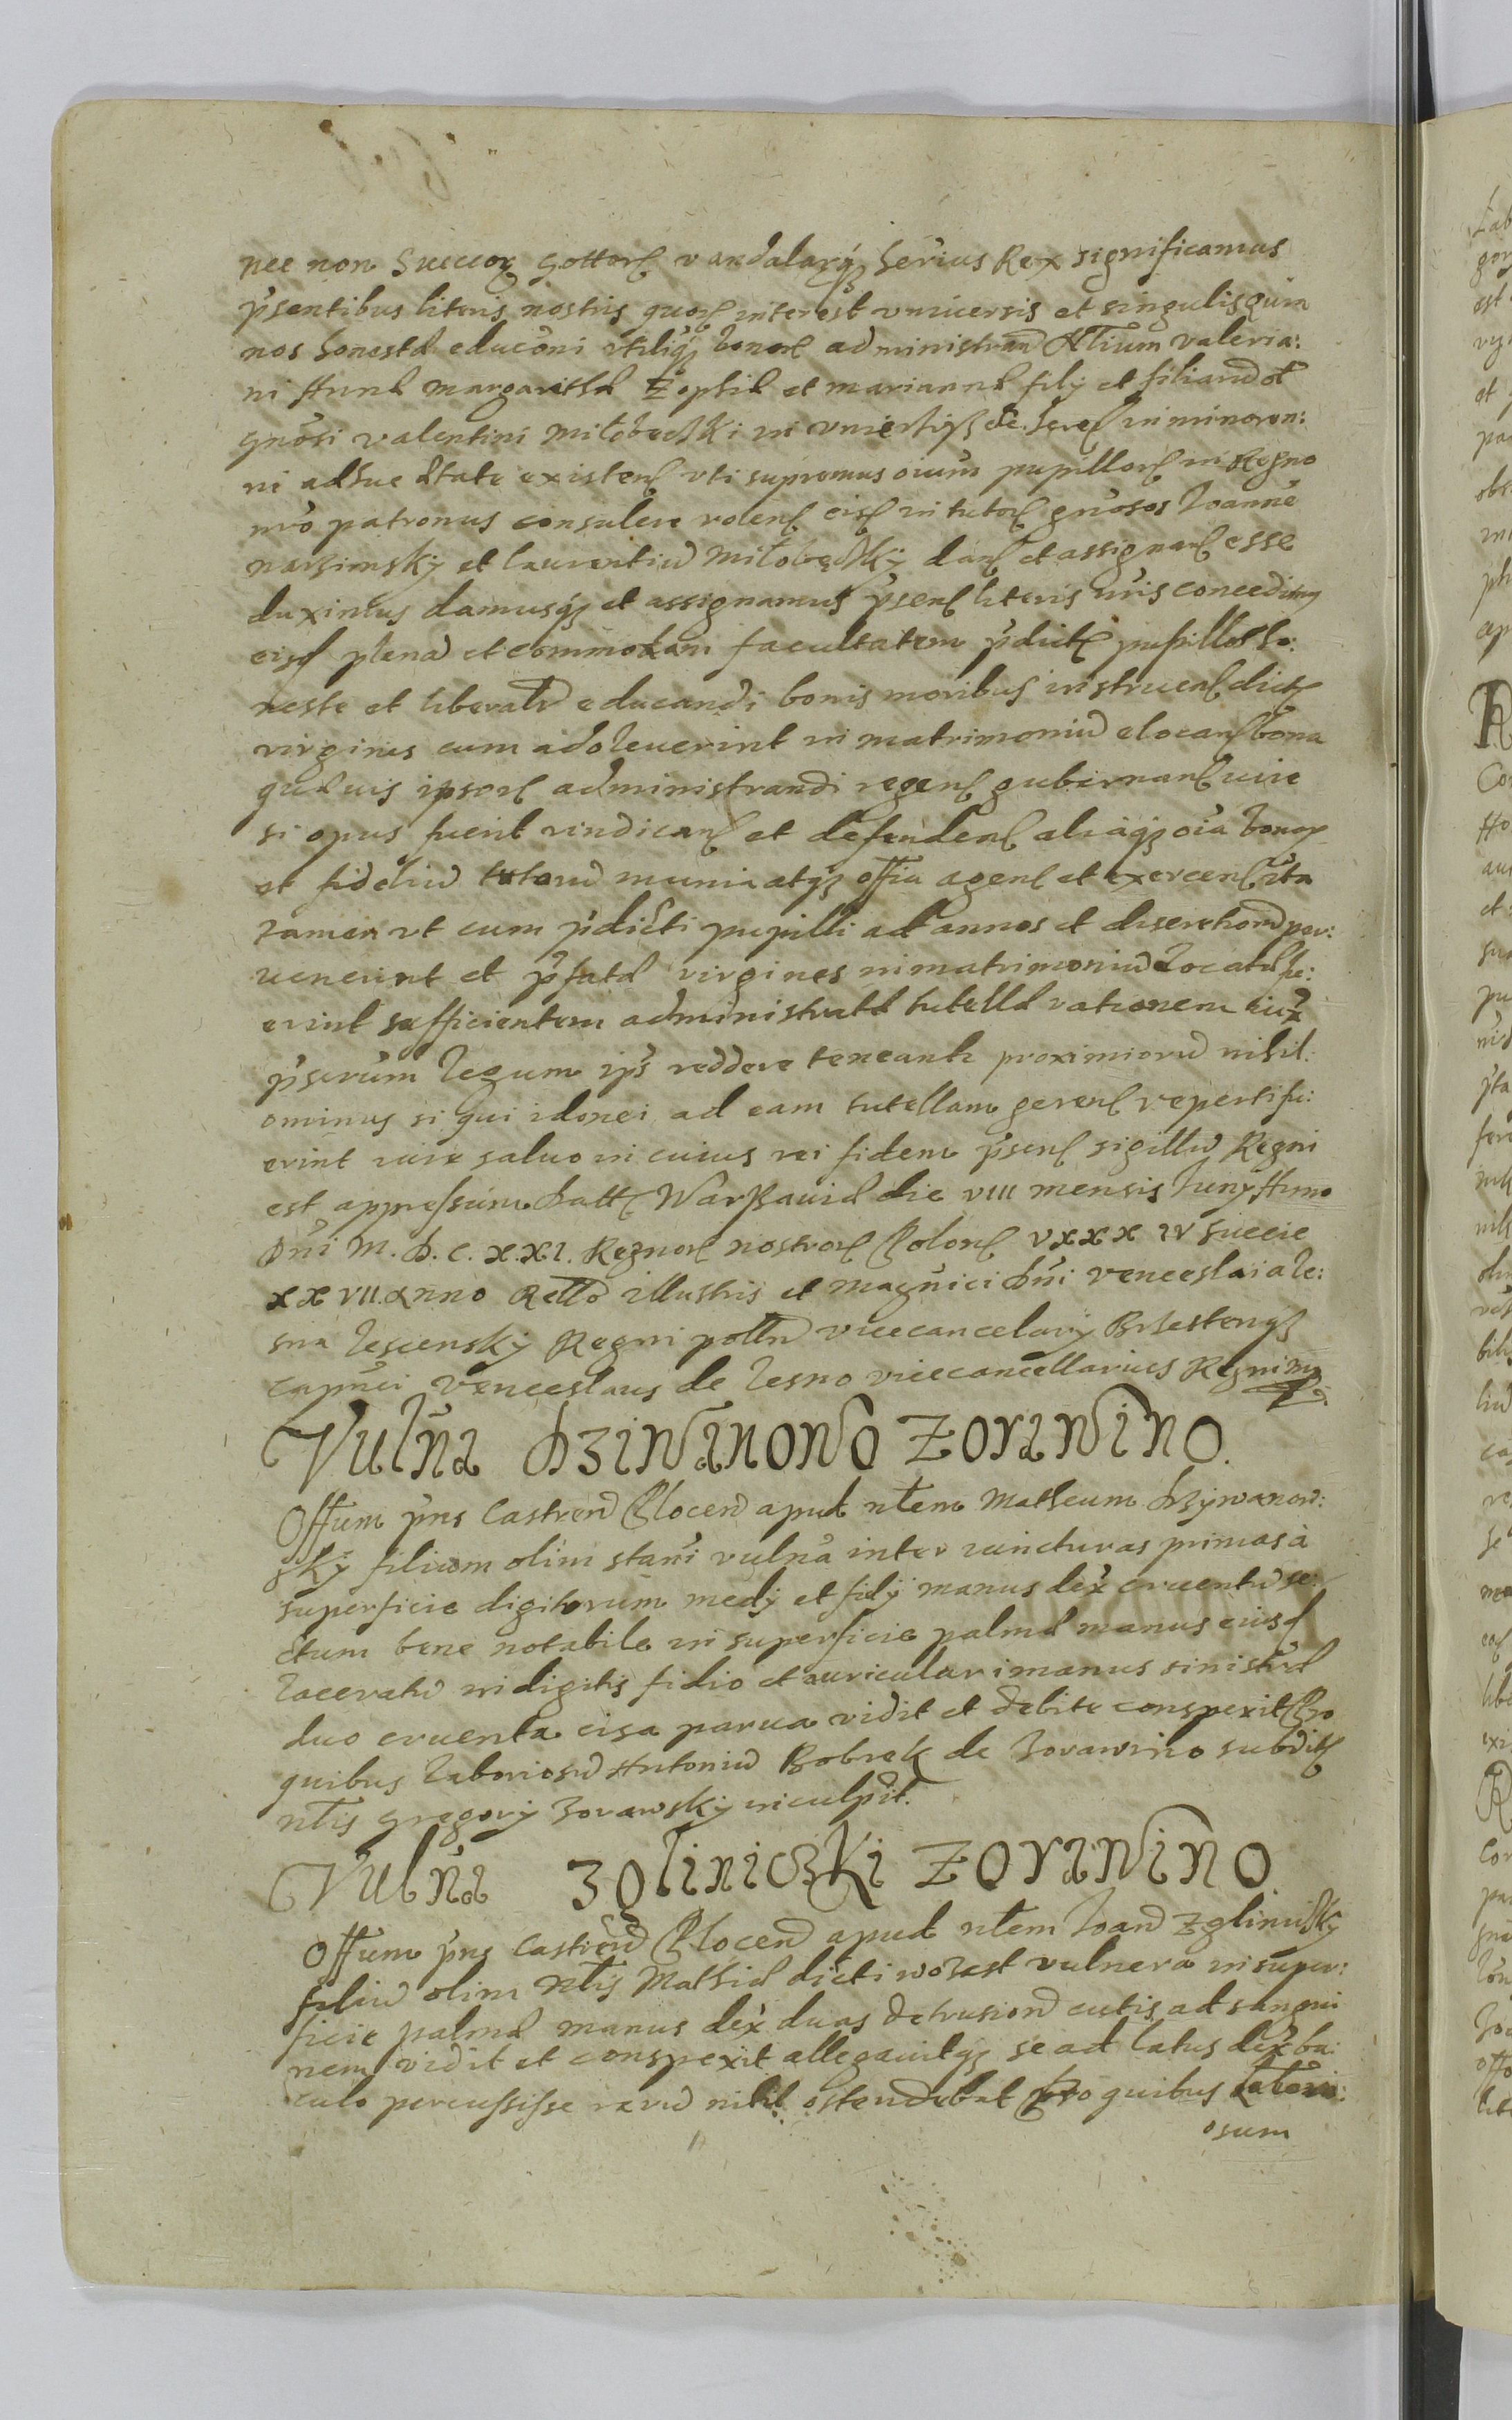 nec non Succor Gottor vandalarqz herius Rex significamus
psentibus literis nostris quor interest vniuersis et singulis quia
nos honesta educoni vtiliqz bonor administran Nlium valeria:
ni Anna margaretha Zophia et marianna filij et filiarum
gnosi valentini Miłobędzki in vniettiss etc. hered in minoren:
ni adhuc ętate existen vti supremus oium pupillor in Regno
nro patronus consulere volen eis in tutor gnosos Joanne
narzimskij et laurentiu Miłobędzkij dan et assignan esse
duximus damusqz et assignamus psen literis nris concedimus
eisd plena et commodam facultatem pdict pupillos ho:
neste et liberalr educandi bonis moribus instruen dict
virgines cum adoleuerint in matrimoniu elocan bona
quęuis ipsor administrandi regen gubernan iure
si opus fuerit vindican et defenden aliaqz oia bonor
et fideliu tutoru munia atqz offia agen et exercen ita
tamen vt cum pdicti pupilli ad annos et discretione per:
uenerint et pfatę virgines in matrimoniu locatę fu:
erint sufficientem administratę tutellę rationem iux
pscrum legum ips reddere teneantr proximioru nihil:
ominus si qui idonei ad eam tutellam geren reperti fu:
erint iure saluo in cuius rei fidem psen sigillu Regni
est appressum. Datt Warssauię die VIII mensis Junij Anno
Dni M. D. C. XXI. Regnor nostror Polon XXXIV Suecie
XXVII. anno Rello illustris et magnici Dni venceslai a le:
sna lescenskij Regni polln vicecancelarij Brzesteng
capnei Venceslaus de lesno vicecancellarius Regni mp
Vulna Dziwanowo Zorawino.
Offum pns Castren Plocen apud nlem Matheum Dzijwanow:
skij filium olim stani vulna inter iuncturas primas à
superficie digitorum medij et fidij manus dex cruentu se:
ctum bene notabile in superficie palmę manus eiusd
laceratu in digitis fidio et auriculari manus sinistrę
duo cruenta cisa parua vidit et debite conspexit Pro
quibus laboriosu Antoniu Bobrek de zorawino subdit
nlis Gregorij zorawskij inculpit.
Vulna Zgliniczki Zorawino
Offum pns Castren Plocen apud nlem Joan Zglinickij
filiu olim nlis Mathię dicti wozest vulnera in super:
ficie palmę manus dex duas detrusione cutis ad sangui
nem vidit et conspexit allegauitqz se ad latus dex ba:
culo percussisse veru nihil ostendebat Pro quibus labori:
osum